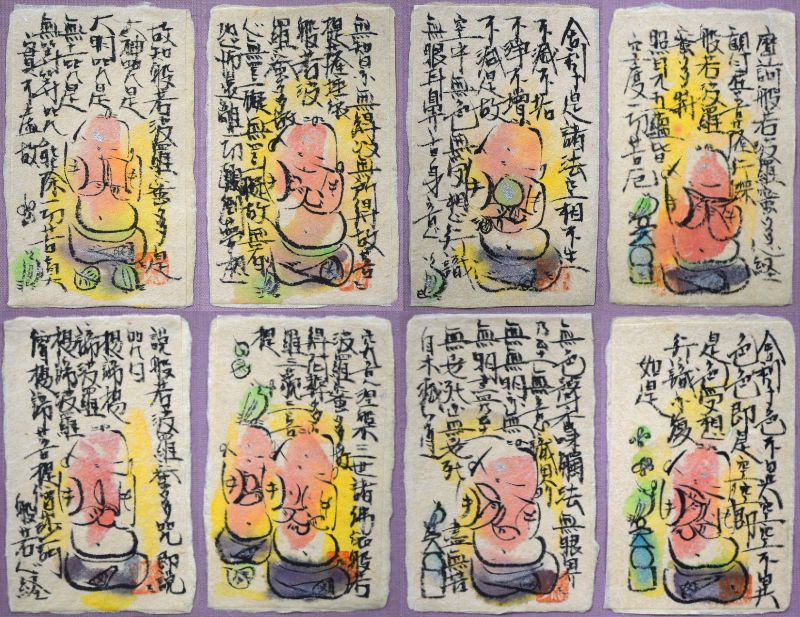 摩訶般若波羅蜜多心経
観自在菩薩行深
般若波羅蜜多時
照見五蘊皆
空度一切苦厄
舎利子色不異空空不異
色色即是空空即
是色受想
行識亦復
如是
舎利子是諸法空相不生
不滅不垢
不浄不増
不減是故
空中無色無受想行識
無眼耳鼻舌身意
無色声香味触法無眼界
乃至無意識界
無無明亦
無無明尽
無智亦無得以無所得故菩
提薩埵依
般若波
羅蜜多故
心無罣礙無罣礙故無有
恐怖遠離一切顛倒夢想
究竟涅槃三世諸仏依般若
波羅蜜多故
得阿耨多
羅三藐三菩
提
故知般若波羅蜜多是
大神呪是
大明呪是
無上呪是
無等等呪能除一切苦真
実不虚故
説般若波羅蜜多呪即説
呪曰
掲諦掲
諦波羅
掲諦波羅
僧掲諦菩提薩婆訶
般若心経